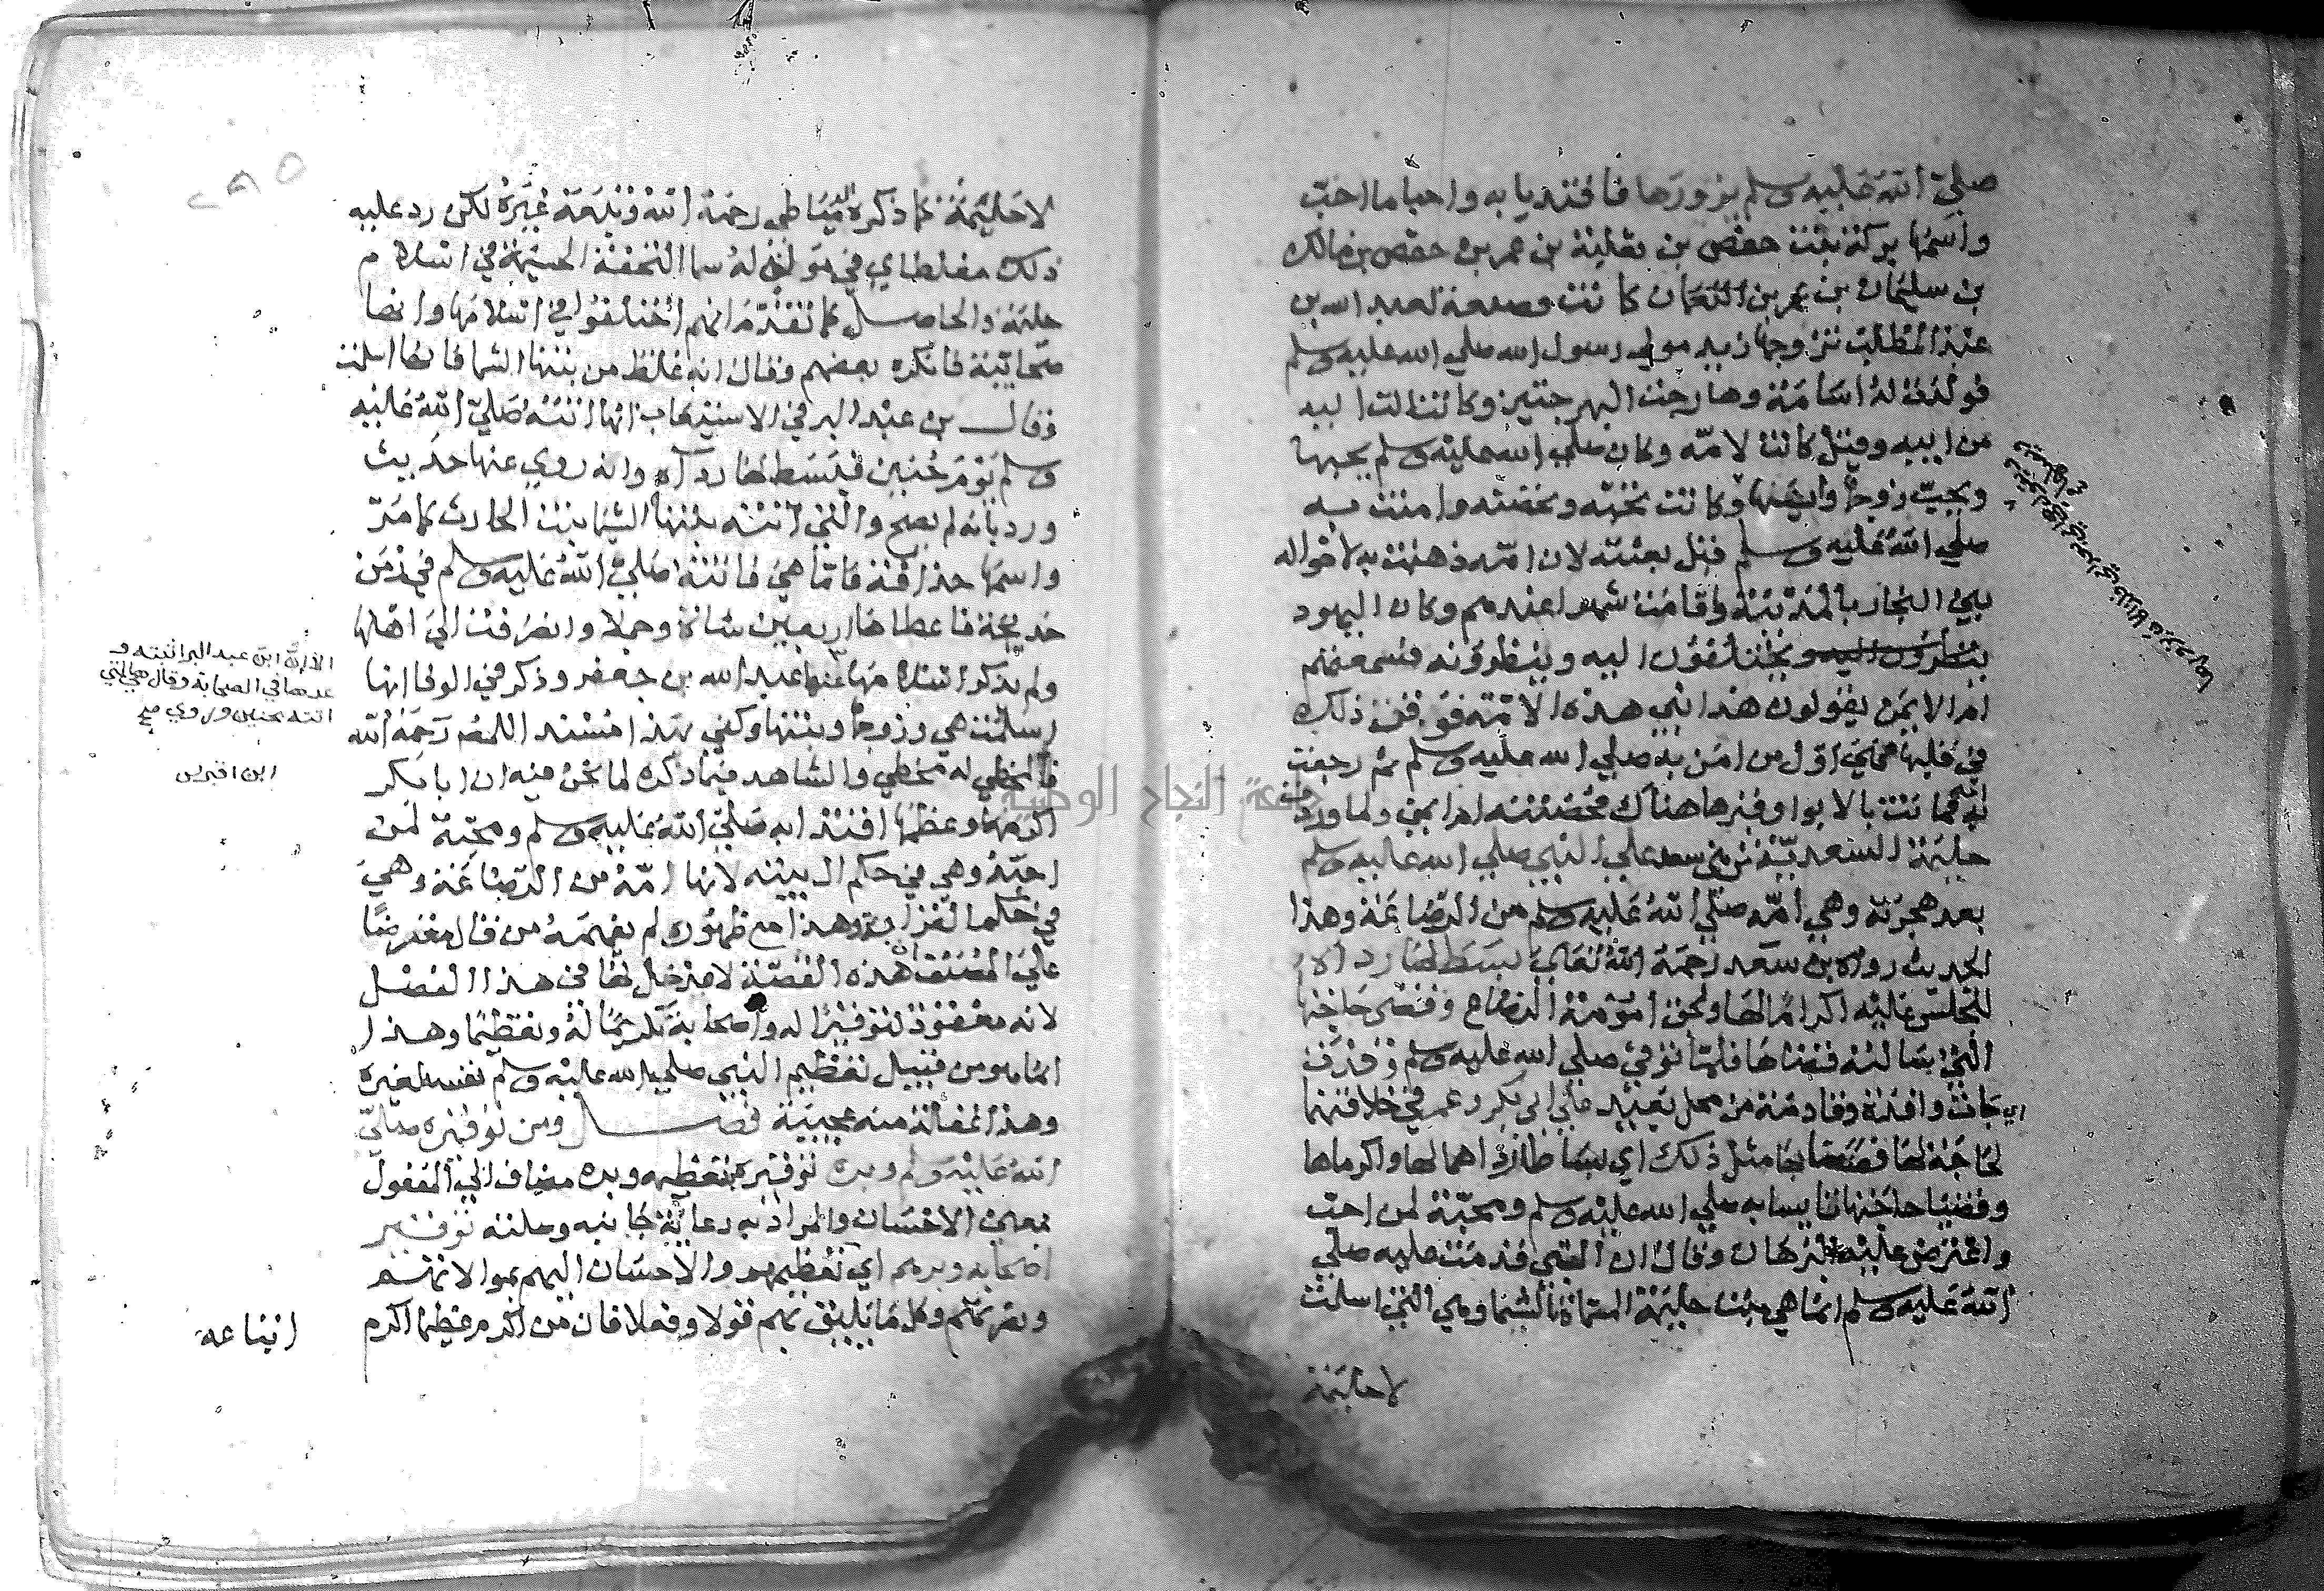 صلي الله عليه وسلم يزورها فاقتديا به واحبا ما احب
واسمها بركة بنت حفص بن ثعلبة بن عمر بن حفص بن مالك
بن سليمان بن عمر بن النعمان كانت وصيفة لعبد الله بن
عبد المطلب تزوجها زيد مولي رسول الله صلي الله عليه وسلم
فولدت له اسامة وهاجرت الهجرتين وكانت الت اليه
من ابيه وقيل كانت لامه وكان صلي الله عليه وسلم يحبها
ويحب زوجها وابنها وكانت تحبه وتحضنه وامنت به
صلي الله عليه وسلم قبل بعثته لان امه ذهبت به لاخواله
بني النجار بالمدينة واقامت شهرا عندهم وكان اليهود
يختلفون اليه وينظرونه فسمعتهم
ام ايمن يقولون هذا نبي هذه الامة فوقر ذلك
في قلبها فهي اول من امن به صلي الله عليه وسلم ثم رجعت
به امه فماتت بالابوا وقبرها هناك فحضنته ام ايمن ولما وردت
حليمة السعدية علي النبي صلي الله عليه وسلم
بعد هجرته وهي امه صلي الله عليه وسلم من الرضاعة وهذا
الحديث رواه بن سعد رحمه الله تعالي بسط لها رداه
لتجلس عليه اكراما لها ولحق امومة الرضاع وقضى حاجتها
التي سالته فلما توفي صلي الله عليه وسلم وفدت
اي جاءت وافدة وقادمة من محل بعيد علي ابي بكر وعمر في خلافتهما
لحاجة لها فصنعا بها مثل ذلك اي بسطا لها رداهما لها واكرماها
وقضيا حاجتها تاسيا به صلي الله عليه وسلم ومحبة لمن احب
واعترض عليه البرهان وقال ان التي قدمت عليه صلي
الله عليه وسلم انما هي بنت حليمة المسماة بالشيما وهي التي اسلمت
لا حليمة
لا حليمة كما ذكره الدمياطي رحمه الله وتبعه غيره لكن رد عليه
ذلك مغلطاي في مولف له سماه التحفة الجسيمة في اسلام
حليمة والحاصل كما تقدم انهم اختلفوا في اسلامها وانها
صحابية فانكره بعضهم وقال انه غلط من بنتها الشيما فانها اسلمت
وقال بن عبد البر في الاستيعاب انها اتته صلي الله عليه
وسلم يوم حنين فبسط لها رداه وانه روي عنها حديث
ورد بانه لم يصح والتي اتته بنتها الشيما بنت الحارث كما مر
واسمها حذافة فاما هي فاتته صلي الله عليه وسلم في زمن
خديجة فاعطاها اربعين شاة وجملا وانصرفت الي اهلها
ولم يذكر اسلامها عبد الله بن جعفر وذكر في الوفا انها
اسلمت هي وزوجها وبنتها وكفي بهذا مستند اللمص رحمه الله
فالمخطي له مخطي والشاهد فيما ذكره لما نحن فيه ان ابا بكر
اكرمها وعظمها اقتدا به صلي الله عليه وسلم ومحبة لمن
احبه وهي في حكم ال بيته لانها امه من الرضاعة وهي
في حكم القرابة وهذا مع ظهوره لم يفهمه من قال معترضا
علي المصنف ان هذه القصة لا مدخل لها في هذا الفصل
لانه معقود لتوقير اله واصحابه تكريما له وتعظيما وهذا
انما هو من قبيل تعظيم النبي صلي الله عليه وسلم نفسه لغيره
وهذا غفلة منه عجيبة فصل ومن توقيره صلي
الله عليه وسلم وبره توقيره تعظيمه وبره مضاف الي المفعول
بمعني الاحسان والمراد به رعاية جانبه وصلته توقير
اصحابه وبرهم اي تعظيمهم والاحسان اليهم بموالاتهم
ونصرتهم وكل ما يليق بهم قولا وفعلا فان من اكرم عظيما اكرم
اتباعه
ابن عبد البر اثبته و
عدها في الصحابة وقال هي التي
اتته بحنين وروي
ابن اقبرس